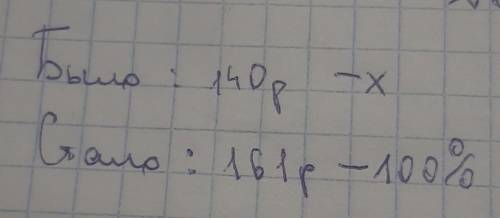 Было : 140р - х
Стало : 161р - 100%